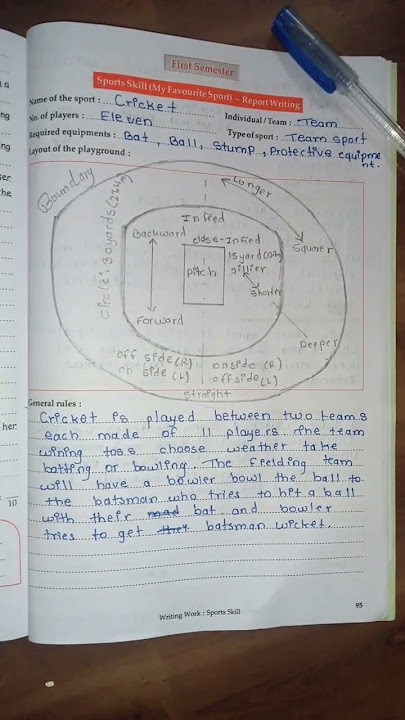 First Semester
Sports Skill (My Favourite Sport) – Report Writing
Name of the sport : Cricket
Individual / Team : Team
No. of players : Eleven
Type of sport : Team sport
Required equipments : Bat, Ball, Stump, Protective equipme
nt.
Layout of the playground :
Boundary
Longer
Circle: 30 yards
Infied
Backward
close-Infied
15 yard
Squarer
pitch
sillier
Shorter
Forward
Deeper
off side (R)
on side (L)
onside (R)
offside (L)
straight
General rules :
Cricket is played between two teams
each made of 11 players the team
wining toss choose weather take
batting or bowling. The fielding team
will have a bowler bowl the ball to
the batsman who tries to hit a ball
with their bat and bowler
tries to get batsman wicket.
her
10
Writing Work : Sports Skill
95